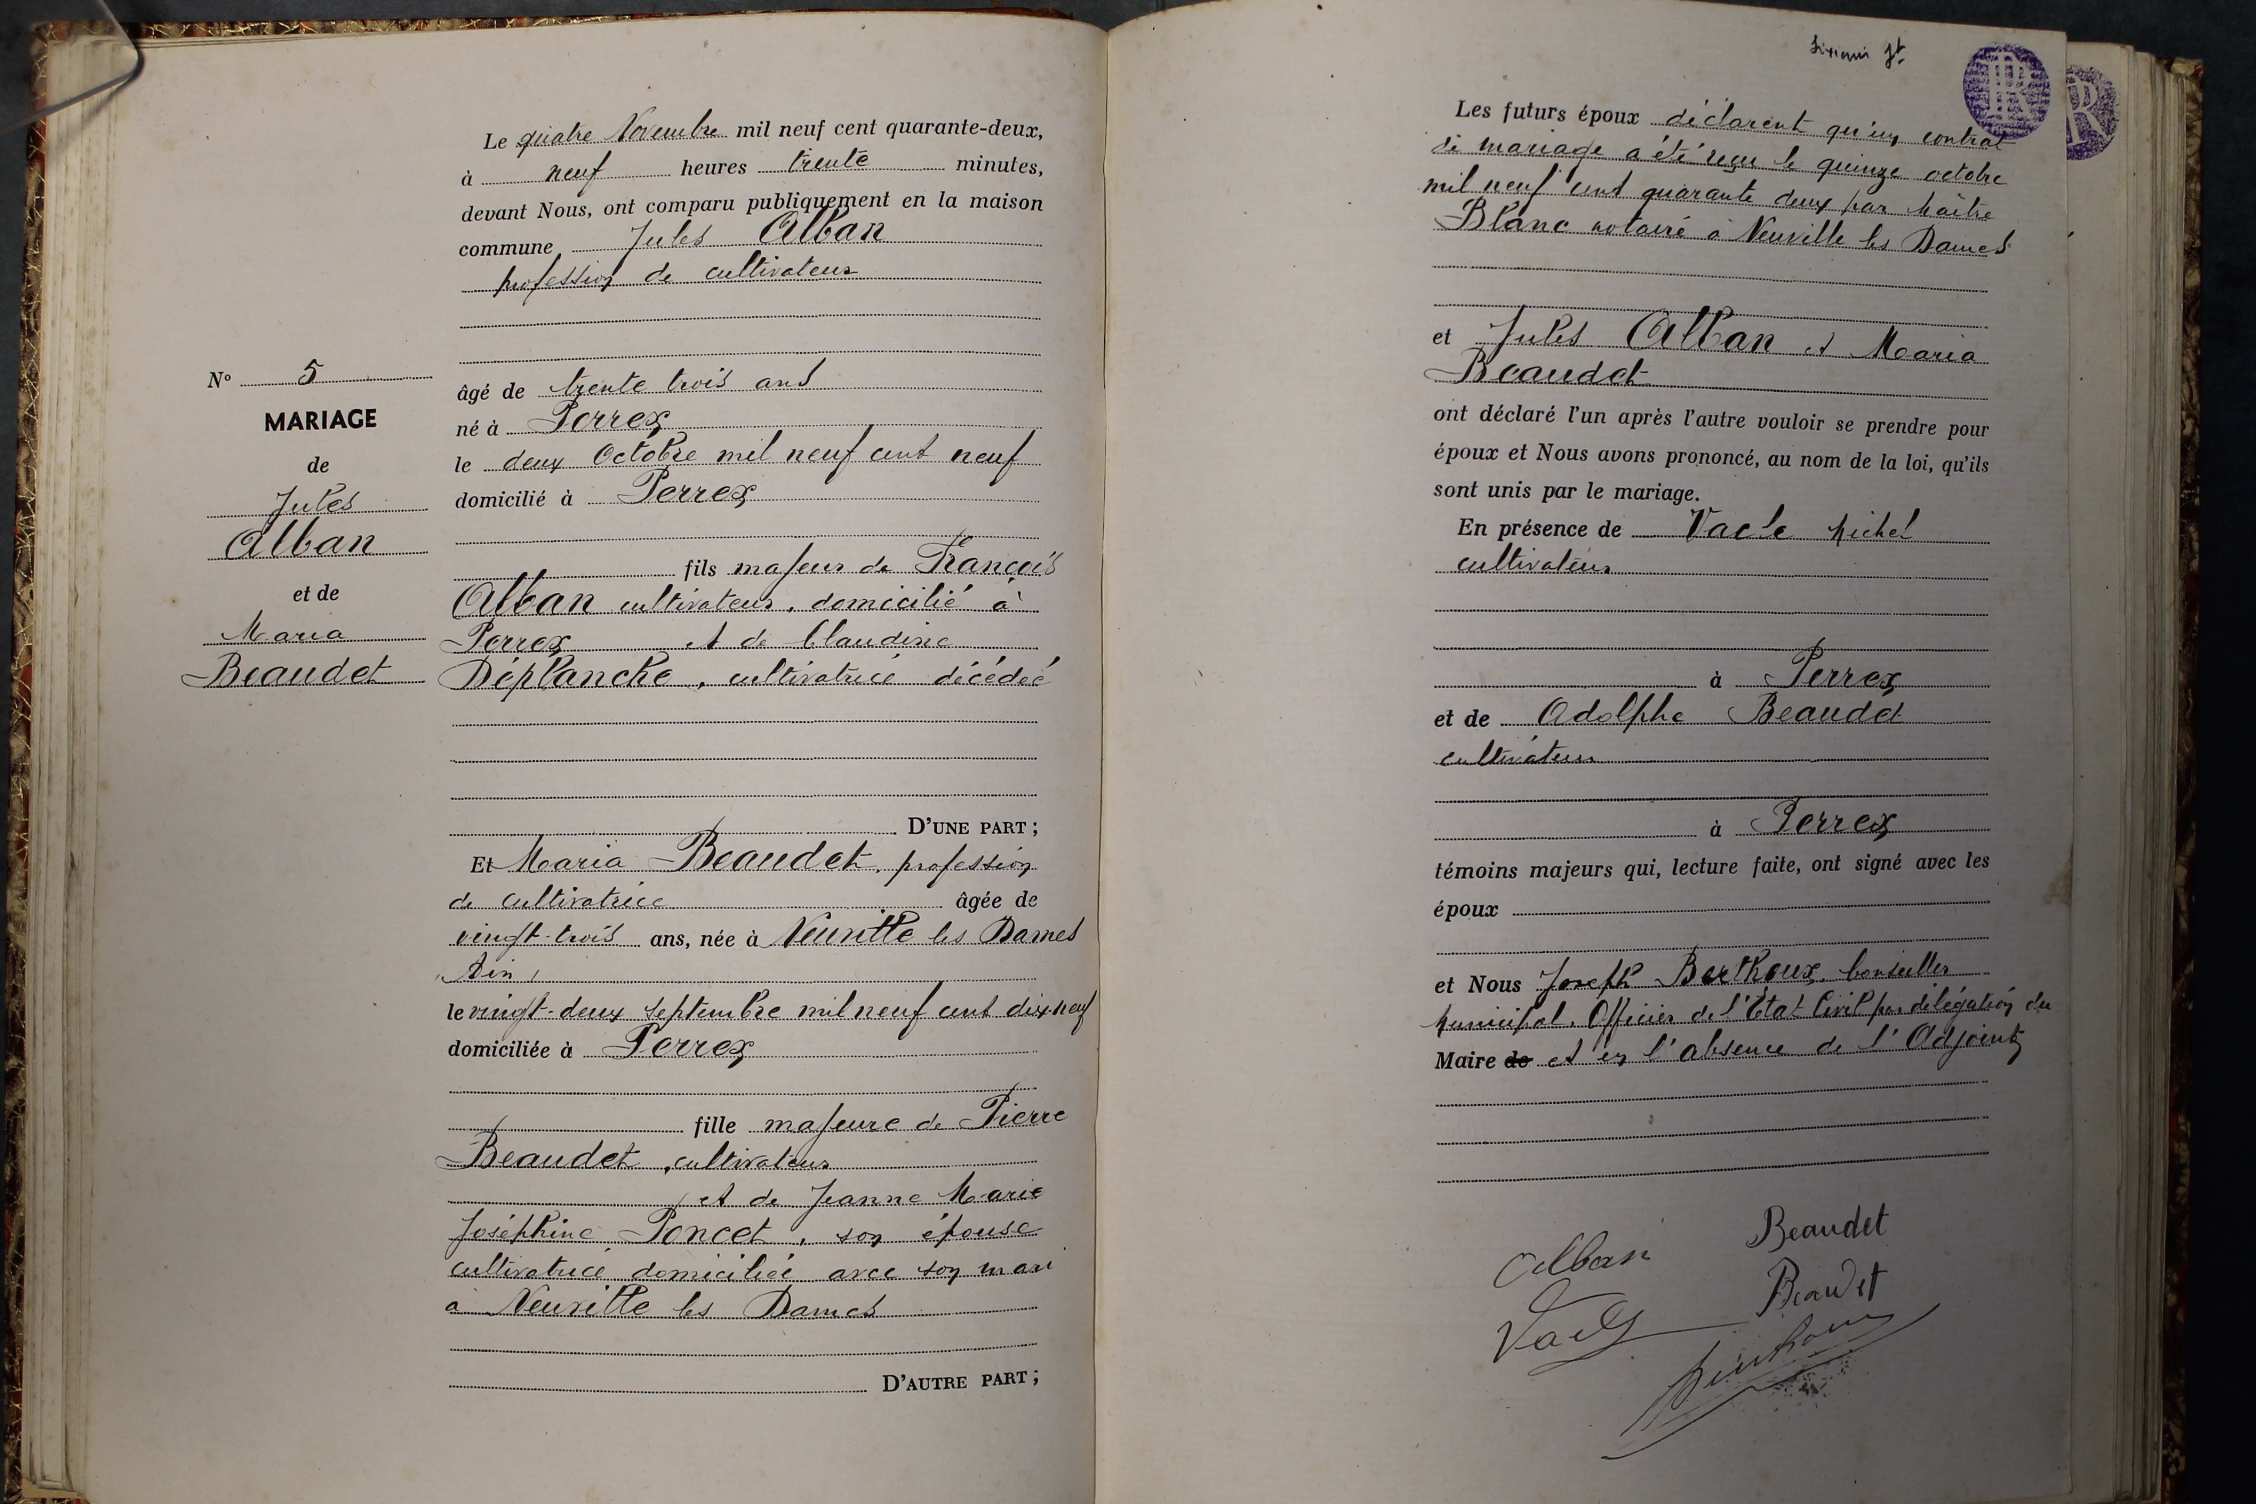 Le quatre Novembre mil neuf cent quarante-deux,
à neuf heures trente minutes,
devant Nous, ont comparu publiquement en la maison
commune Jules Alban
profession de cultivateur
N° 5
MARIAGE
de
Jules
Alban
et de
Maria
Beaudet
âgé de trente trois ans
né à Perrex
le deux Octobre mil neuf cent neuf
domicilié à Perrex
fils majeur de François
Alban cultivateur, domicilié à
Perrex et de Claudine
Déplanche, cultivatrice décédée
D'UNE PART ;
Et Maria Beaudet, profession
de cultivatrice âgée de
vingt-trois ans, née à Neuville les Dames
Ain,
le vingt-deux septembre mil neuf cent dix neuf
domiciliée à Perrex
fille majeure de Pierre
Beaudet, cultivateur
et de Jeanne Marie
Joséphine Poncet, son épouse
cultivatrice domiciliée avec son mari
à Neuville les Dames
D'AUTRE PART ;
RF
Les futurs époux déclarent qu'un contrat
de mariage a été reçu le quinze octobre
mil neuf cent quarante deux par Maître
Blanc notaire à Neuville les Dames
et Jules Alban et Maria
Beaudet
ont déclaré l'un après l'autre vouloir se prendre pour
époux et Nous avons prononcé, au nom de la loi, qu'ils
sont unis par le mariage.
En présence de Vacle Michel
cultivateur
à Perrex
et de Adolphe Beaudet
cultivateur
à Perrex
témoins majeurs qui, lecture faite, ont signé avec les
époux
et Nous Joseph Berthoux, Conseiller
Municipal, Officier de l'Etat Civil par délégation du
Maire de et en l'absence de l'Adjoint
Alban Beaudet
Vacle Beaudet
Berthoux